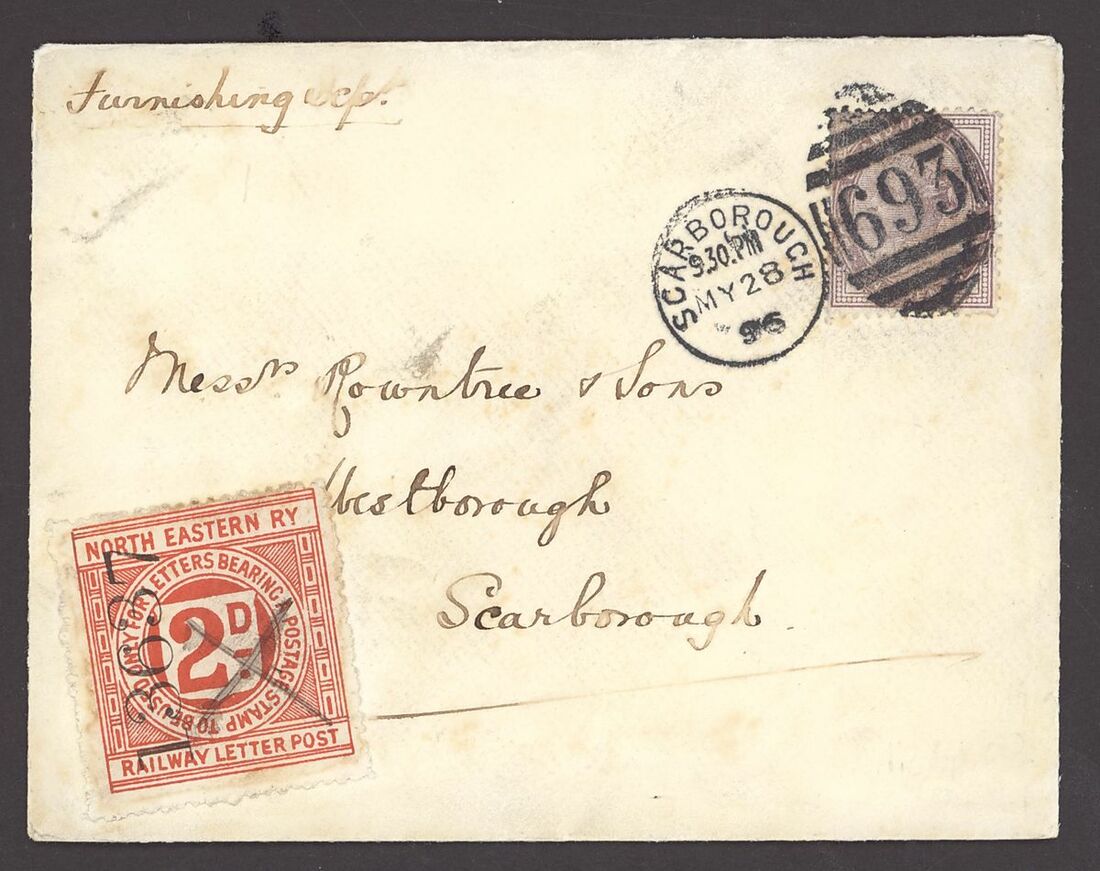 Furnishing Dept.
693
SCARBOROUGH
9.30.PM
MY 28
96
Messrs Rowntree & Sons
Westborough
Scarborough.
NORTH EASTERN RY
TO BE USED ONLY FOR LETTERS BEARING A POSTAGE STAMP
2D.
13637
RAILWAY LETTER POST